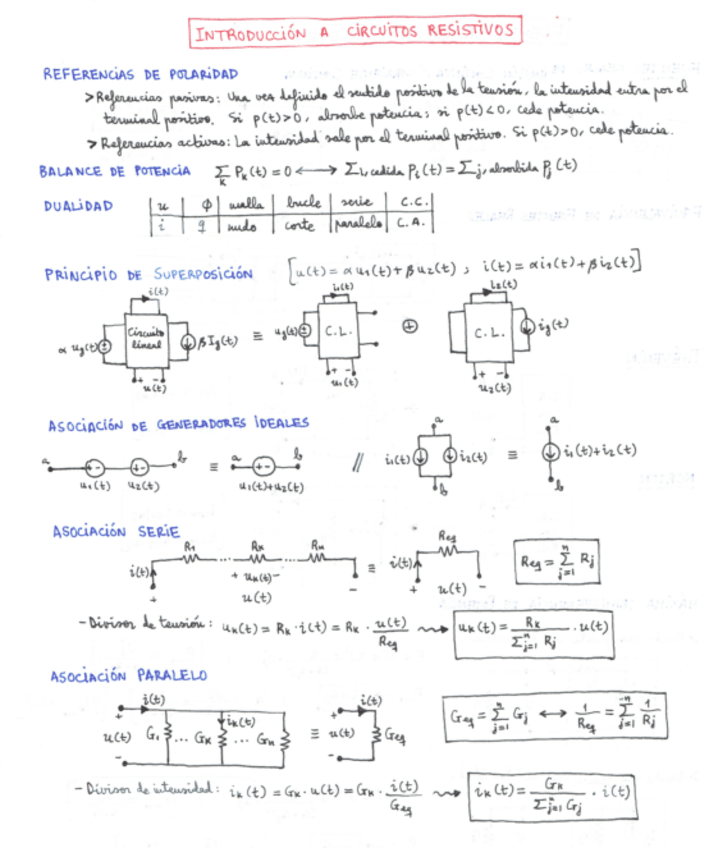 INTRODUCCIÓN A CIRCUITOS RESISTIVOS
REFERENCIAS DE POLARIDAD
> Referencias pasivas: Una vez definido el sentido positivo de la tensión, la intensidad entra por el
terminal positivo. Si p(t)>0, absorbe potencia; si p(t)<0, cede potencia.
> Referencias activas: La intensidad sale por el terminal positivo. Si p(t)>0, cede potencia.
BALANCE DE POTENCIA ∑_K P_K(t) = 0 ⟷ ∑i, cedida P_i(t) = ∑j, absorbida P_j(t)
DUALIDAD | u | ϕ | malla | bucle | serie | C.C. |
| i | q | nudo | corte | paralelo | C.A. |
PRINCIPIO DE SUPERPOSICIÓN [u(t) = α u₁(t) + β u₂(t) ; i(t) = α i₁(t) + β i₂(t)]
i(t) i₁(t) i₂(t)
α u_g(t) Circuito lineal β I_g(t) ≡ u_g(t) C.L. ⊕ C.L. i_g(t)
+ − u(t) + − u₁(t) + − u₂(t)
ASOCIACIÓN DE GENERADORES IDEALES
a + − + − b ≡ a + − b // a i₁(t) i₂(t) b ≡ a i₁(t)+i₂(t) b
u₁(t) u₂(t) u₁(t)+u₂(t)
ASOCIACIÓN SERIE
R₁ ... R_K ... R_n Req
i(t) + u_K(t) − ≡ i(t) Req = ∑_{j=1}^{n} R_j
+ u(t) − + u(t) −
- Divisor de tensión: u_K(t) = R_K · i(t) = R_K · u(t)/Req ⇝ u_K(t) = R_K/∑_{j=1}^{n} R_j · u(t)
ASOCIACIÓN PARALELO
i(t) i(t)
+ u(t) − G₁ ... G_K i_K(t) ... G_n ≡ + u(t) − Geq Geq = ∑_{j=1}^{n} G_j ⟷ 1/Req = ∑_{j=1}^{n} 1/R_j
- Divisor de intensidad: i_K(t) = G_K · u(t) = G_K · i(t)/Geq ⇝ i_K(t) = G_K/∑_{j=1}^{n} G_j · i(t)